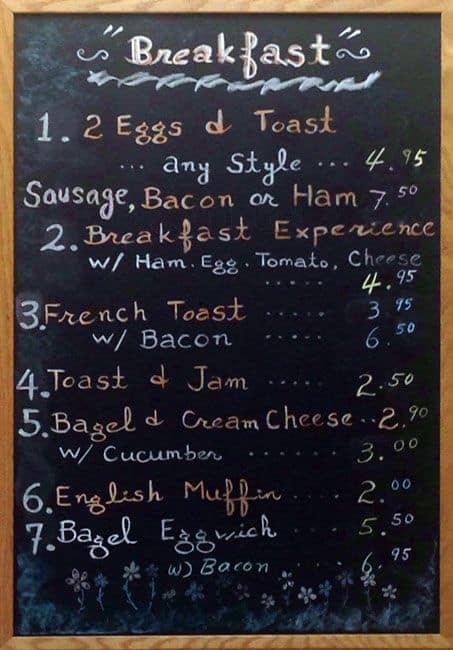 "Breakfast"
1. 2 Eggs & Toast
... any Style ... 4.95
Sausage, Bacon or Ham 7.50
2. Breakfast Experience
w/ Ham. Egg. Tomato, Cheese
..... 4.95
3. French Toast ..... 3 95
w/ Bacon ..... 6.50
4. Toast & Jam ..... 2.50
5. Bagel & Cream Cheese .. 2.90
w/ Cucumber ...... 3.00
6. English Muffin .... 2.00
7. Bagel Eggwich .... 5.50
w) Bacon .... 6.95